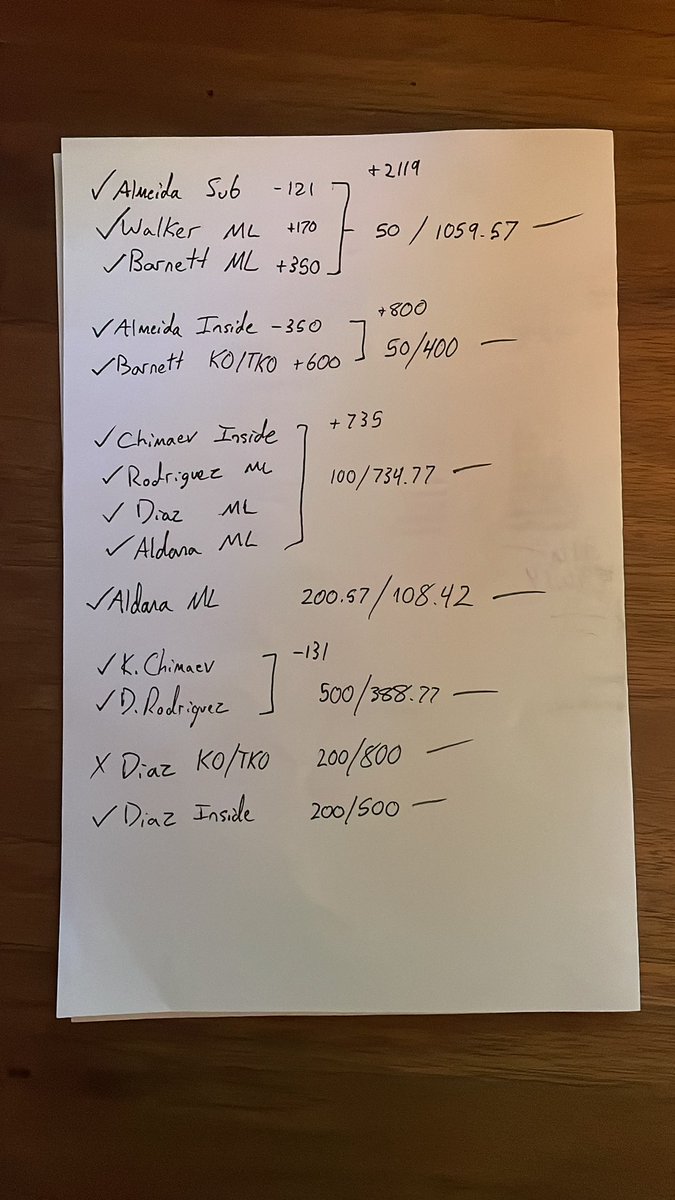 ✓ Almeida Sub -121 +2119
✓ Walker ML +170 50 / 1059.57 —
✓ Barnett ML +350
✓ Almeida Inside -350 +800
✓ Barnett KO/TKO +600 50/400 —
✓ Chimaev Inside +735
✓ Rodriguez ML 100/734.77 —
✓ Diaz ML
✓ Aldana ML
✓ Aldana ML 200.57/108.42 —
✓ K. Chimaev -131
✓ D. Rodriguez 500/388.77 —
X Diaz KO/TKO 200/800 —
✓ Diaz Inside 200/500 —